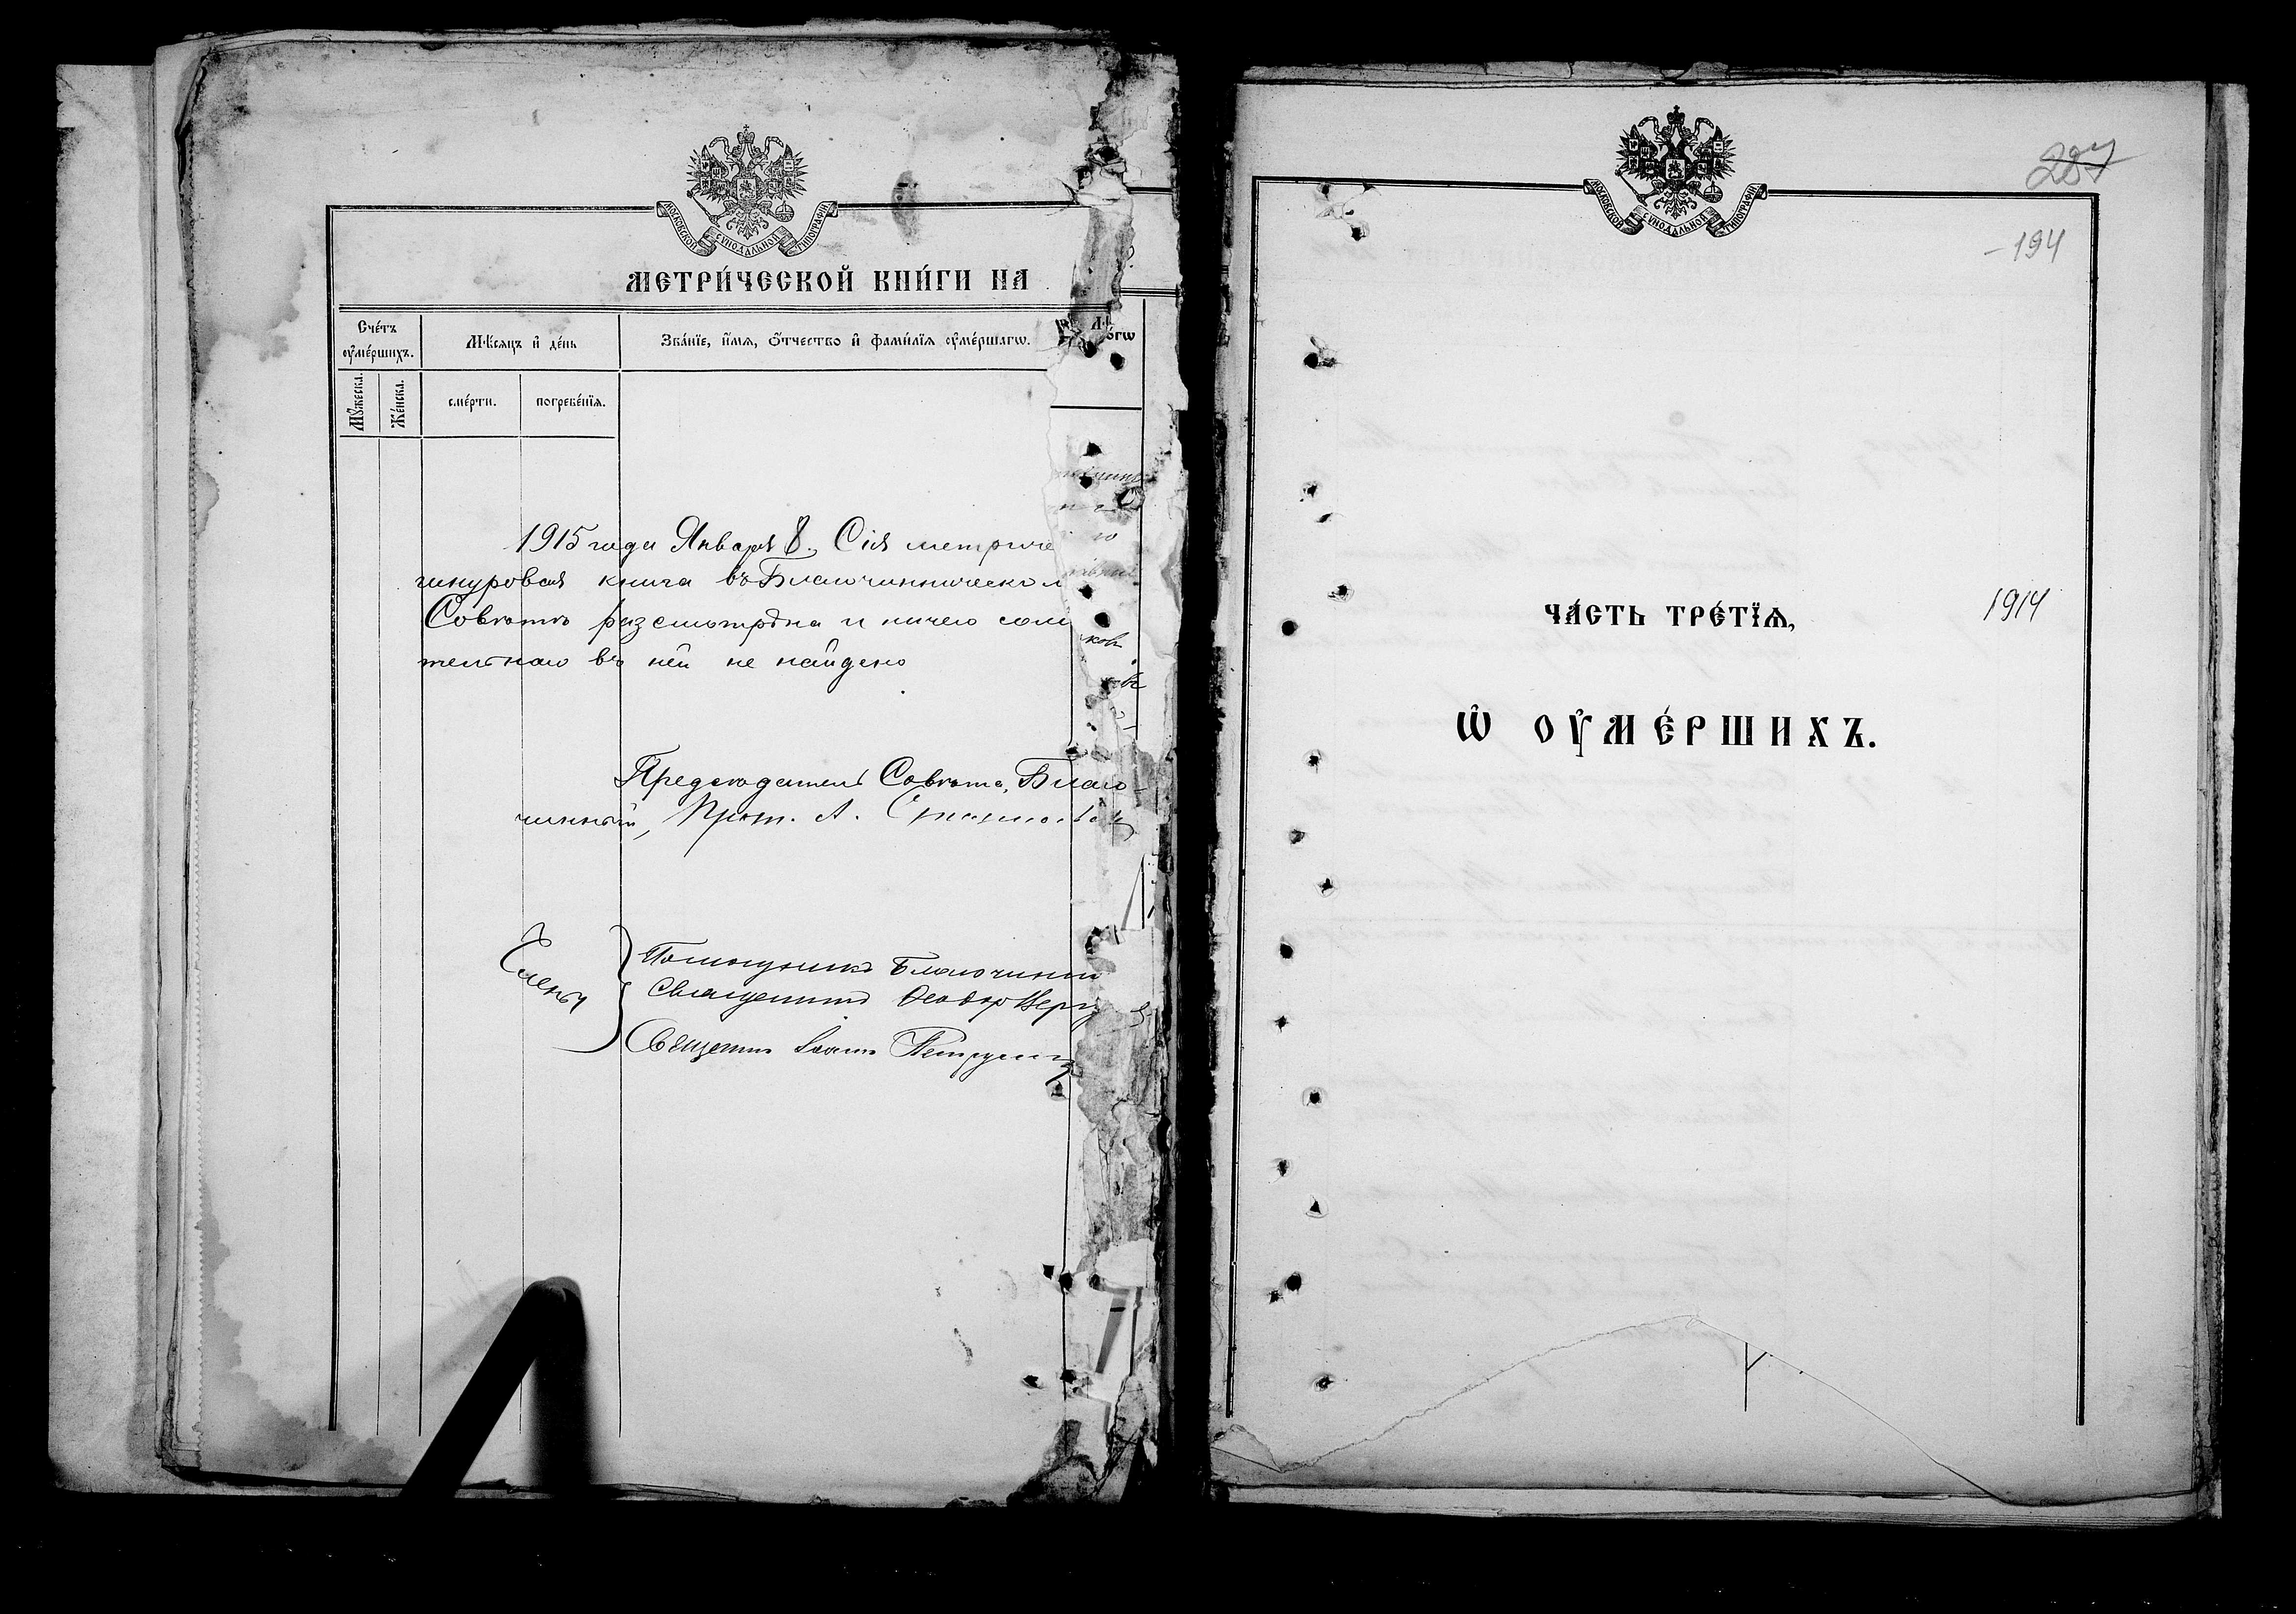 МОСКОВСКОЙ СѴНОДАЛЬНОЙ ТИПОГРАФІИ
МЕТРИ́ЧЕСКОЙ КНИ́ГИ НА
Сче́тъ ᲂу҆ме́ршихъ.
Мѣ́сяцъ и҆ де́нь
Зва́нїе, и҆́мя, ѻ҆́тчество и҆ фами́лїя ᲂу҆ме́ршагѡ.
Му́жеска.
Же́нска.
сме́рти.
погребе́нїя.
1915 года Января 8. Сія метриче
шнуровая книга въ Благочинническом
Совѣтѣ разсмотрѣна и ничего сом
тельнаго въ ней не найдено
Предсѣдатель Совѣта, Благо-
чинный, Прот. А.
Члены
Помощникъ Благочинн
Священникъ Ѳеодоръ
Священникъ Іоаннъ
МОСКОВСКОЙ СѴНОДАЛЬНОЙ ТИПОГРАФІИ
287
-194
ЧА́СТЬ ТРЕ́ТЇѦ,
1914
Ѽ ОУ҆МЕ́РШИХЪ.